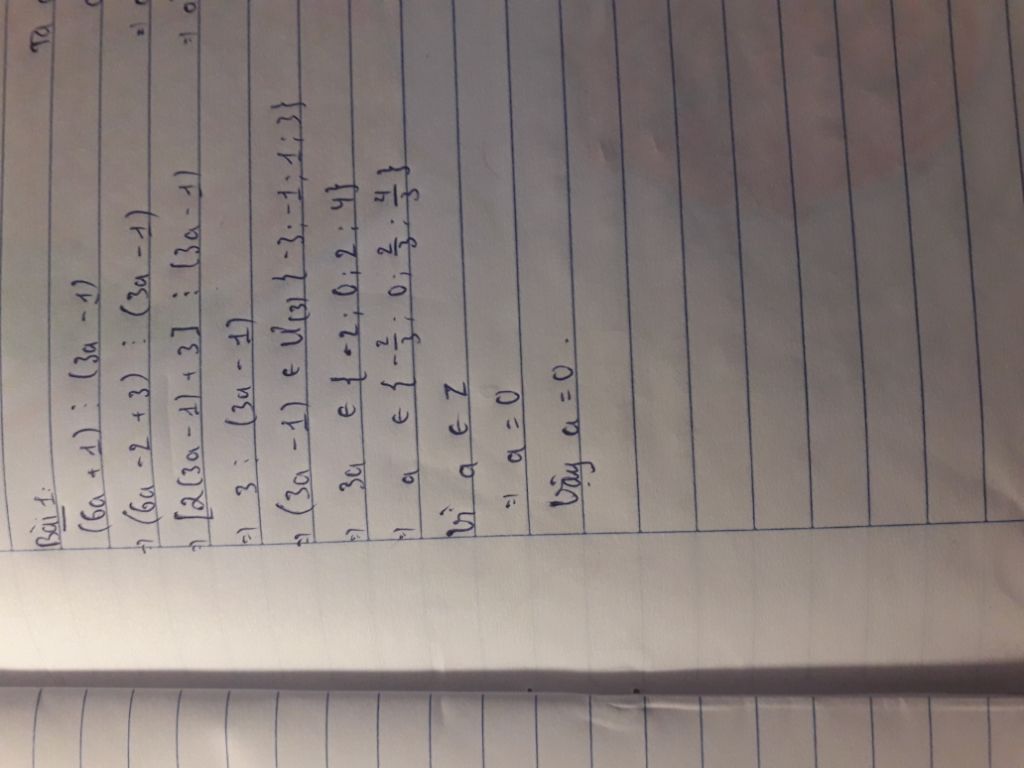 Bài 1:
(6a + 1) ⋮ (3a - 1)
=> (6a - 2 + 3) ⋮ (3a - 1)
=> [2(3a - 1) + 3] ⋮ (3a - 1)
=> 3 ⋮ (3a - 1)
=> (3a - 1) ∈ Ư(3) {-3; -1; 1; 3}
=> 3a ∈ {-2; 0; 2; 4}
=> a ∈ {-2/3; 0; 2/3; 4/3}
Vì a ∈ Z
=> a = 0
Vậy a = 0.
Ta